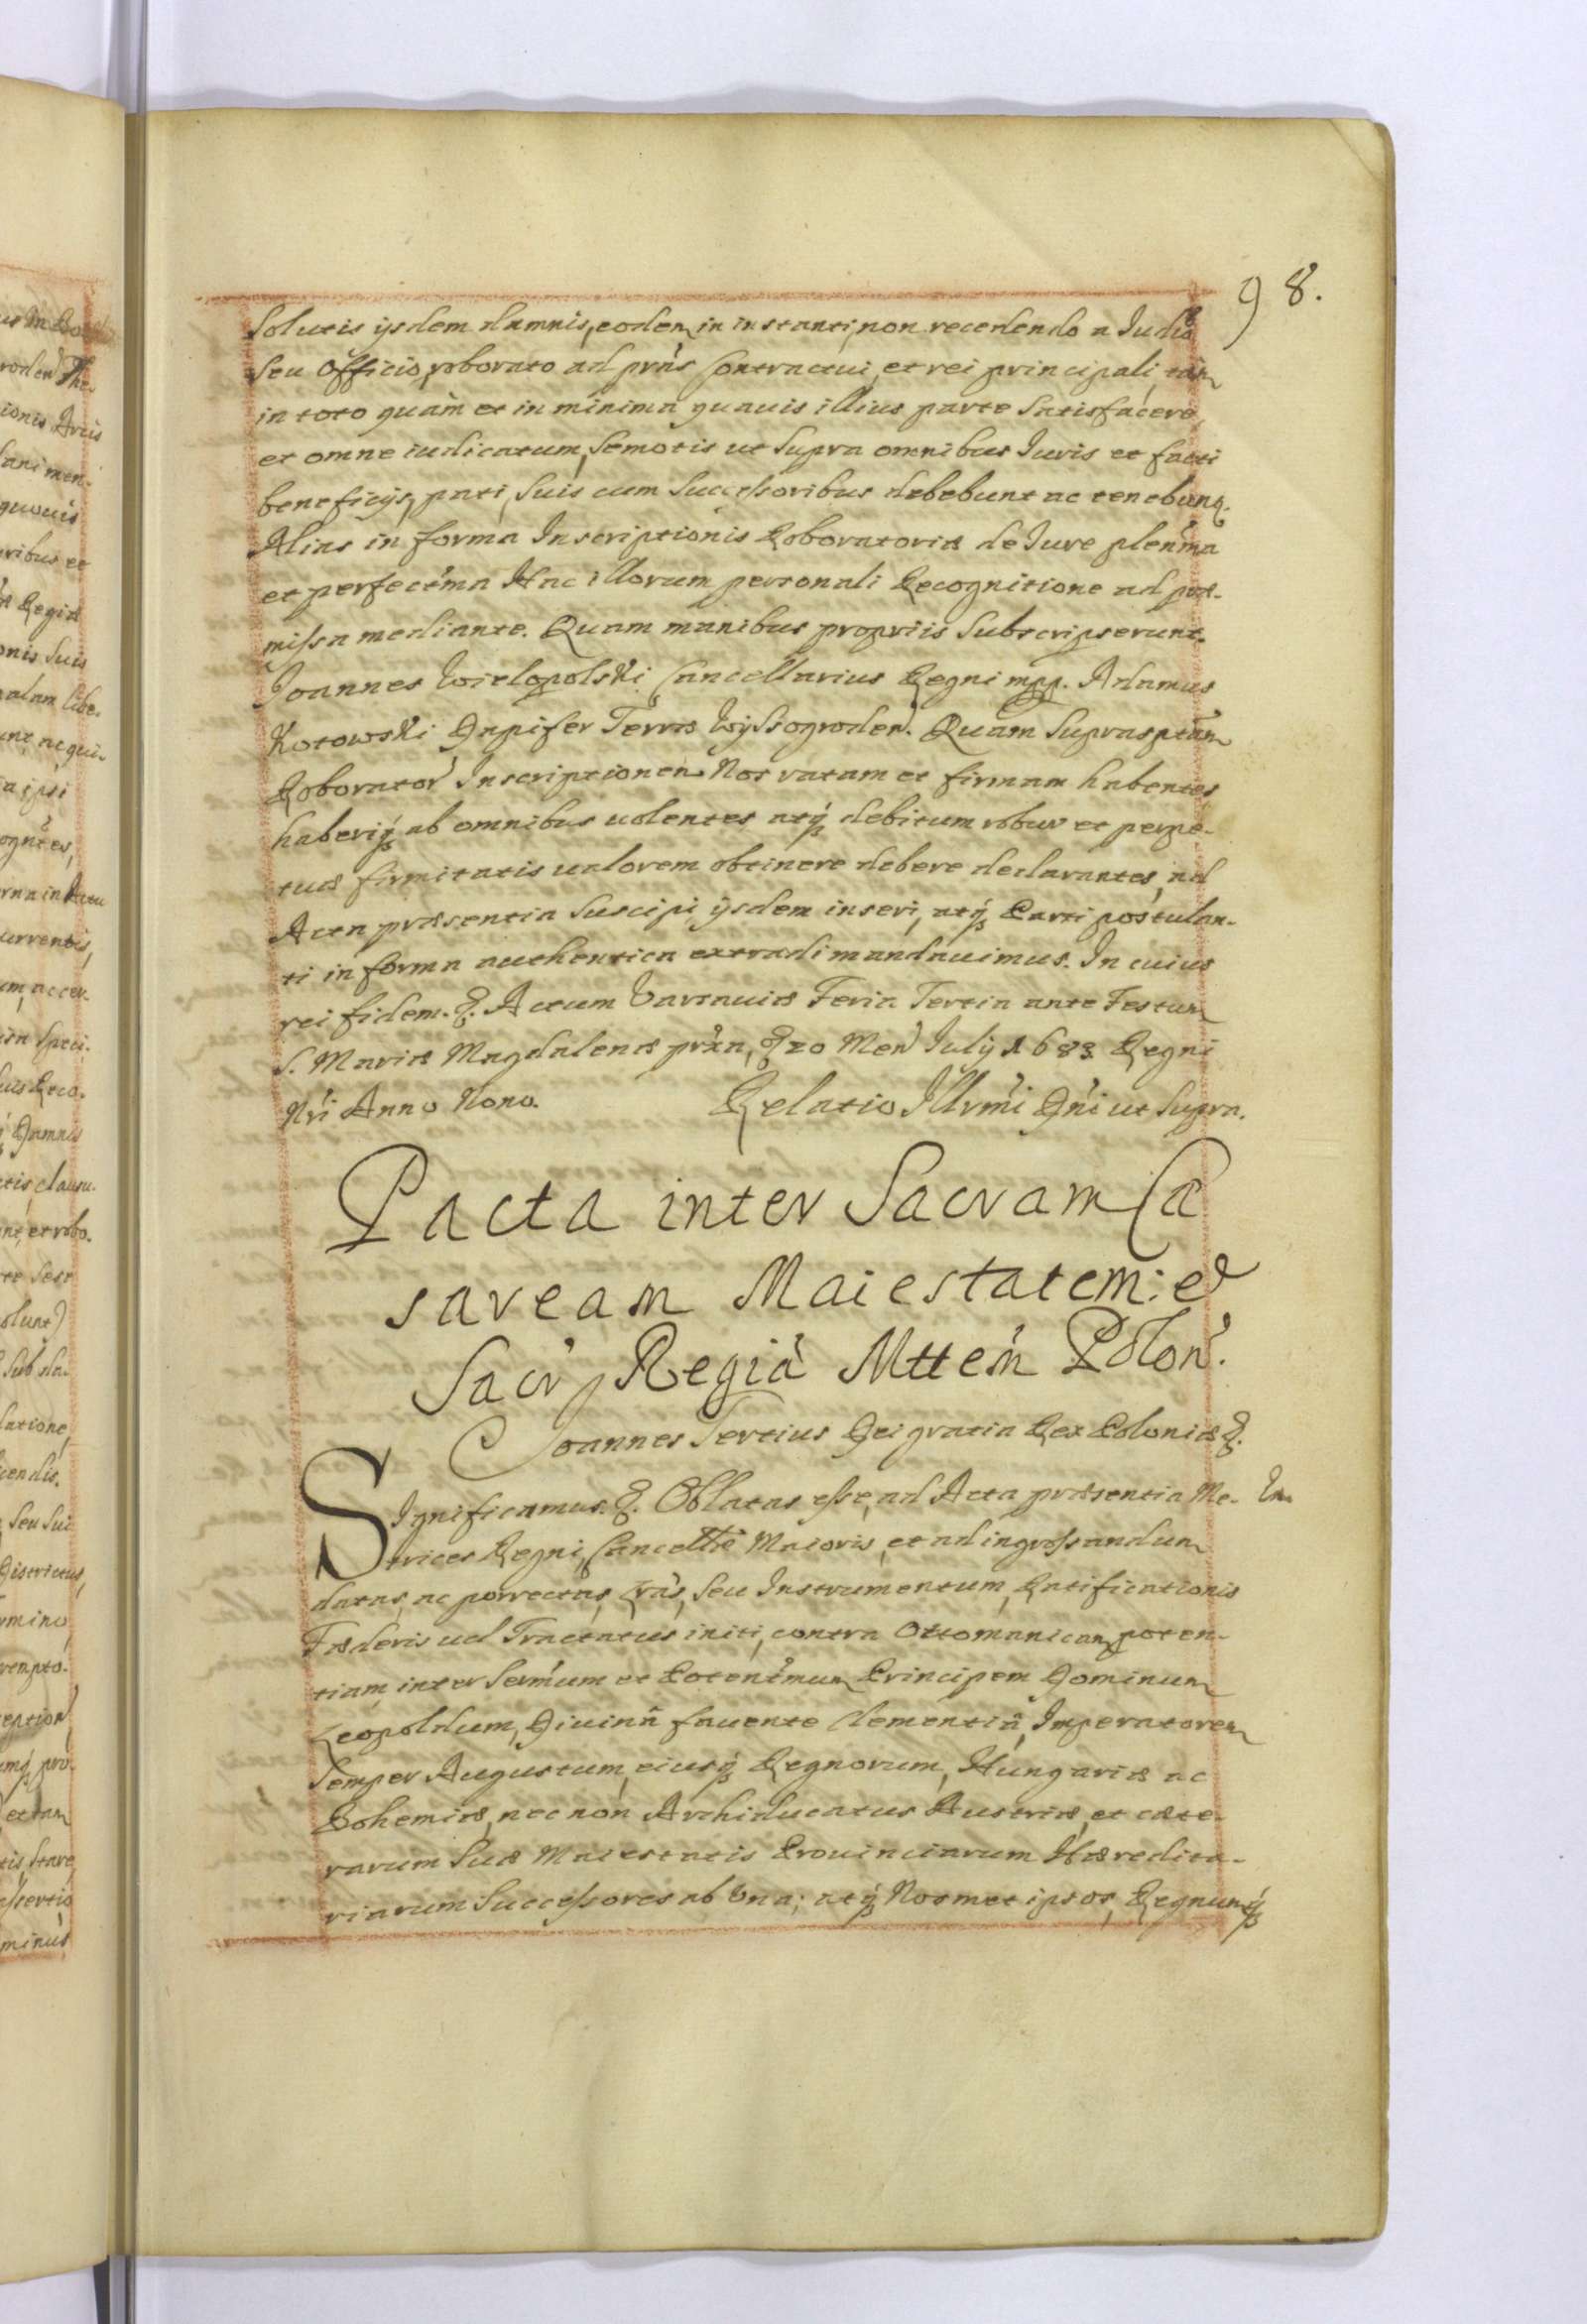 98.
Solutis ijsdem damnis, eodem in instanti, non recedendo a Judio
Seu Officio, roborato ad prns Contractui, et rei principali, tam
in toto quàm et in minima quauis illius parte Satisfacere,
et omne iudicatum, Semotis ut Supra omnibus Iuris et facti
beneficijs, pati, Suis cum Successoribus debebunt ac tenebunt.
Alias in forma Inscriptionis Roboratoriæ de Iure plenma
et perfectma Hac illorum personali Recognitione ad præ-
missa mediante. Quam manibus propriis Subscripserunt.
Joannes Wielopolski Cancellarius Regni mpp. Adamus
Kotowski Dapifer Terræ Wyssogroden. Quam Suprasptam
Roborator Inscriptionem Nos ratam et firmam habentes
haberiq; ab omnibus uolentes atq; debitum robur et perpe-
tuæ firmitatis ualorem obtinere debere declarantes, ad
Acta præsentia Suscipi ijsdem inseri, atq; Parti postulan-
ti in forma authentica extradi mandauimus. In cuius
rei fidem. &. Actum Varsauiæ Feria Tertia ante Festum
S. Mariæ Magdalenæ prxa, & 20 Men Julij 1683 Regni
Nri Anno Nono. Relatio Illrmi Dni ut Supra.
Pacta inter Sacram Cæ
saream Maiestatem: et
Sacr Regia Mttem Polon.
Joannes Tertius Dei gratia Rex Poloniæ &.
Significamus. &. Oblatas esse, ad Acta præsentia Me-
trices Regni, Cancellrie Maioris, et ad ingrossandum
datas, ac porrectas, Lras, Seu Instrumentum, Ratificationis
Fæderis uel Tractatus initi, contra Ottomanicam poten-
tiam, inter Sermum et Potentmum Principem Dominum
Leopoldum, Diuinâ fauente clementiâ, Imperatorem
Semper Augustum, eiusq; Regnorum, Hungariæ ac
Bohemiæ, nec non Archiducatus Austriæ, et cæte-
rarum Suæ Maiestatis Prouinciarum Hæredita-
riarum Successores ab Vna; atq; Nosmet ipsos, Regnumq;